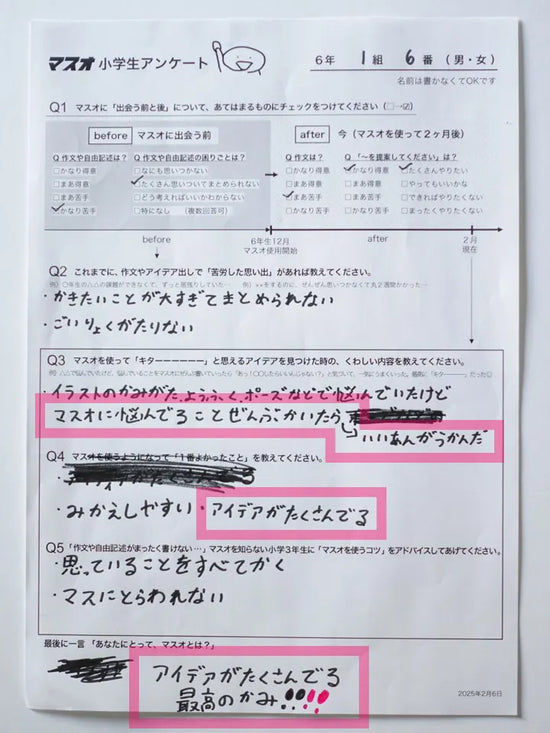 マスオ 小学生アンケート
6年 1組 6番 (男・女)
名前は書かなくてOKです
Q1 マスオに「出会う前と後」について、あてはまるものにチェックをつけてください (□→☑)
before マスオに出会う前
after 今 (マスオを使って2ヶ月後)
Q 作文や自由記述は?
□かなり得意
□まあ得意
□まあ苦手
☑かなり苦手
Q 作文や自由記述の困りごとは?
□なにも思いつかない
☑たくさん思いついてまとめられない
□どう考えればいいかわからない
□特になし (複数回答可)
Q 作文は?
□かなり得意
□まあ得意
☑まあ苦手
□かなり苦手
Q 「〜を提案してください」は?
☑かなり得意
□まあ得意
□まあ苦手
□かなり苦手
☑たくさんやりたい
□やってもいいかな
□できればやりたくない
□まったくやりたくない
before
6年生12月
マスオ使用開始
after
2月
現在
Q2 これまでに、作文やアイデア出しで「苦労した思い出」があれば教えてください。
・かきたいことが大すぎてまとめられない
・ごいりょくがたりない
Q3 マスオを使って「キターーーーーー」と思えるアイデアを見つけた時の、くわしい内容を教えてください。
・イラストのかみがた、ようふく、ポーズなどで悩んでいたけど
マスオに悩んでることぜんぶかいたら
いいあんがうかんだ
Q4 マスオを使うようになって「1番よかったこと」を教えてください。
・みかえしやすい・アイデアがたくさんでる
Q5 「作文や自由記述がまったく書けない…」マスオを知らない小学3年生に「マスオを使うコツ」をアドバイスしてあげてください。
・思っていることをすべてかく
・マスにとらわれない
最後に一言 「あなたにとって、マスオとは?」
アイデアがたくさんでる
最高のかみ!!!!
2025年2月6日